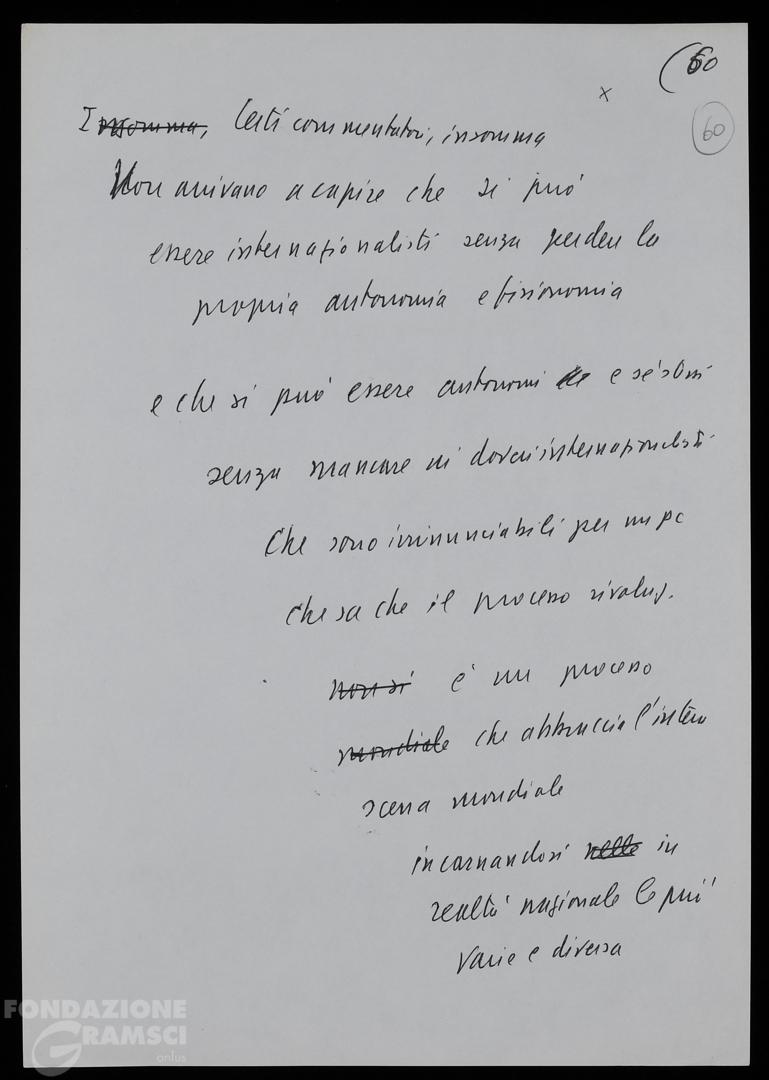 (60
x
60
Insomma, Certi commentatori, insomma
Non arrivano a capire che si può
essere internazionalisti senza perdere la
propria autonomia e fisionomia
e che si può essere autonomi e
senza mancare ai doveri internazionalisti
Che sono irrinunciabili per un pc
Che sa che il processo rivoluz.
non si è un processo
mondiale che abbraccia l'intera
scena mondiale
incarnandosi nelle in
realtà nazionale le più
varie e diversa
FONDAZIONE
GRAMSCI
onlus